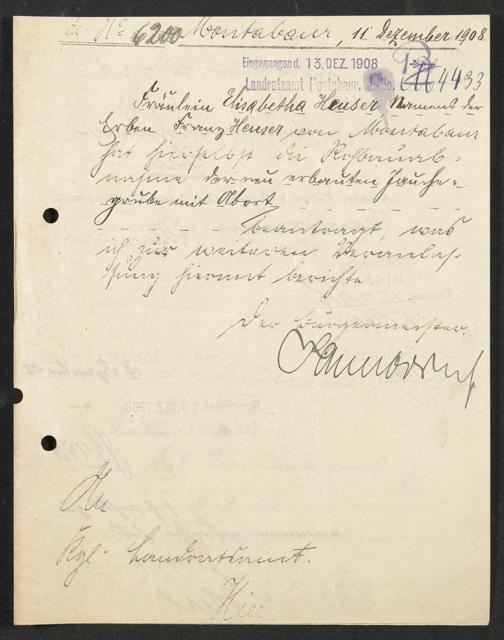 J. No 6200 Montabaur, 11 Dezember 1908.
Eingegangen d. 13. DEZ. 1908
Landratsamt Montabaur. J. No. 4433
Fräulein Elisabetha Heuser Namens der
Erben Franz Heuser von Montabaur
hat hierselbst die Rohbauab-
nahme der neu erbauten Jauche-
grube mit Abort
beantragt, was
ich zur weiteren Veranlas-
sung hiermit berichte.
Der Bürgermeister.
An
Kgl. Landratsamt.
Hier